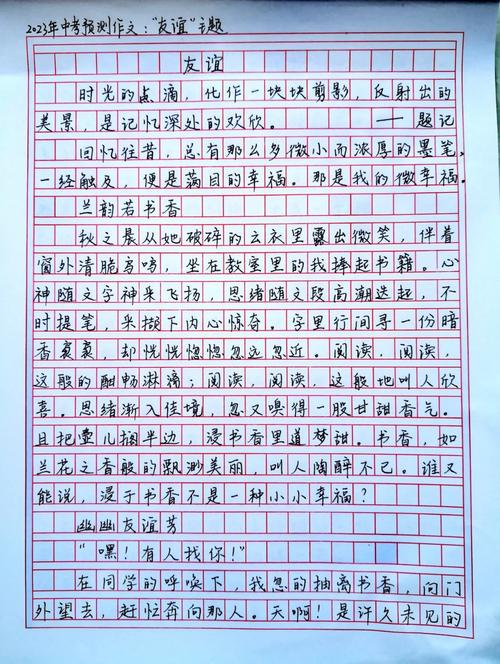 2023年中考预测作文:"友谊"主题
友谊
时光的点滴,化作一块块剪影,反射出的
美景,是记忆深处的欢欣。 ——题记
回忆往昔,总有那么多微小而浓厚的墨笔,
一经触及,便是满目的幸福。那是我的微幸福。
兰韵若书香
秋之晨从她破碎的云衣里露出微笑,伴着
窗外清脆鸟鸣,坐在教室里的我捧起书籍。心
神随文字神采飞扬,思绪随文段高潮迭起,不
时提笔,采撷下内心惊奇。字里行间寻一份暗
香袅袅,却恍恍惚惚忽远忽近。阅读,阅读,
这般的酣畅淋漓;阅读,阅读,这般地叫人欣
喜。思绪渐入佳境,忽又嗅得一股甘甜香气。
且把壶儿搁半边,浸书香里道梦甜。书香,如
兰花之香般的飘渺美丽,叫人陶醉不已。谁又
能说,浸于书香不是一种小小幸福?
幽幽友谊芳
"嘿!有人找你!"
在同学的呼唤下,我忽的抽离书香,向门
外望去,赶忙奔向那人。天啊!是许久未见的